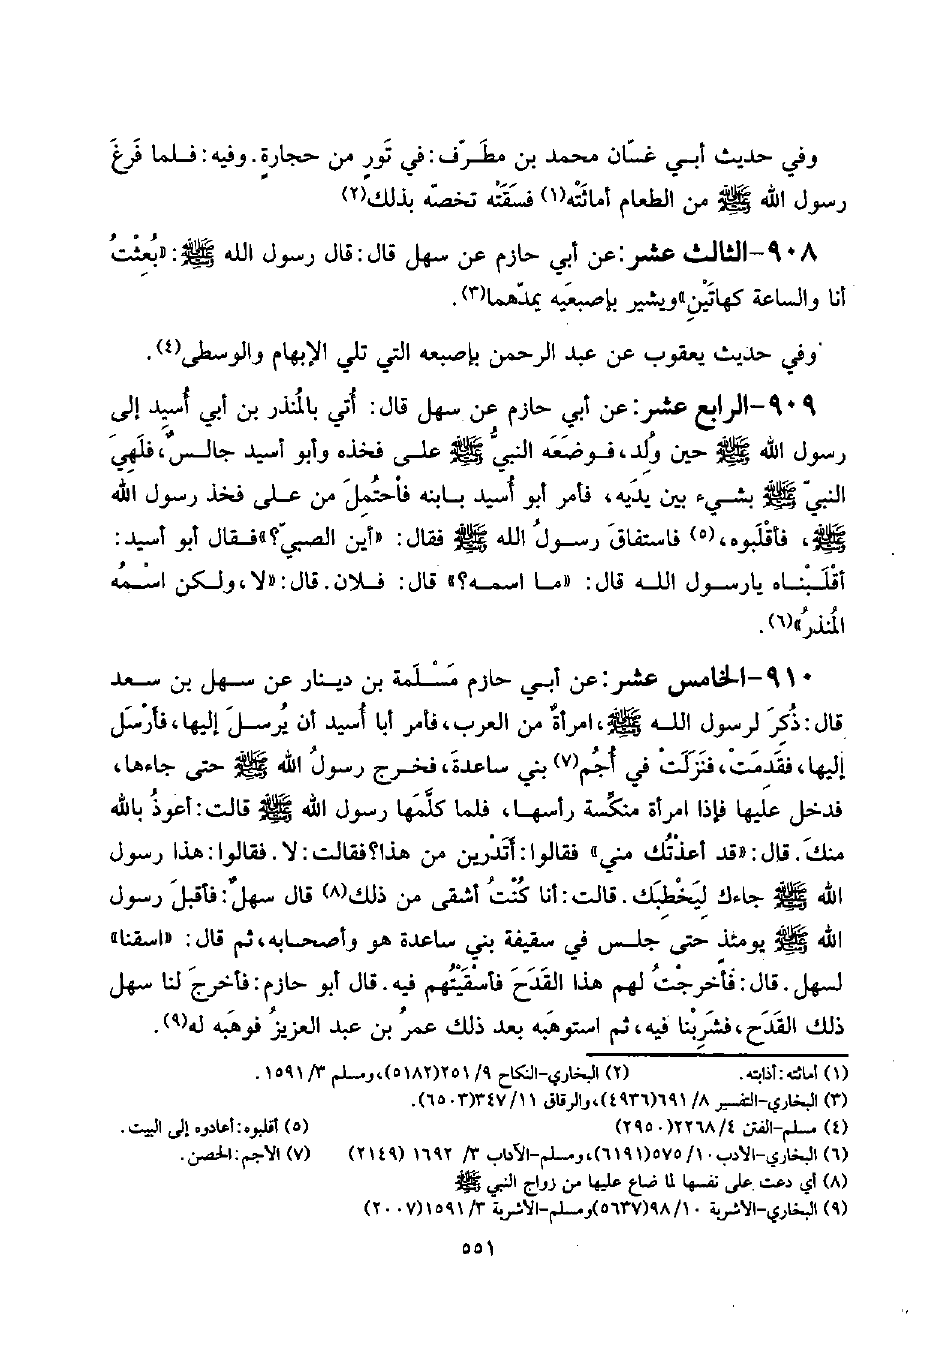 وفي حديث أبي غسّان محمد بن مطَرّف: في تَورٍ من حجارةٍ. وفيه: فلما فَرغَ
رسول الله ﷺ من الطعام أماثَتْه(١) فسَقَتْه تخصّه بذلك(٢)
٩٠٨-الثالث عشر: عن أبي حازم عن سهل قال: قال رسول الله ﷺ: «بُعثْتُ
أنا والساعة كهاتَيْنِ» ويشير بإصبعَيه يمدّهما(٣).
وفي حديث يعقوب عن عبد الرحمن بإصبعه التي تلي الإبهام والوسطى(٤).
٩٠٩-الرابع عشر: عن أبي حازم عن سهل قال: أُتي بالمُنذر بن أبي أُسيد إلى
رسول الله ﷺ حين وُلد، فوضَعَه النبيُّ ﷺ على فخذه وأبو أسيد جالسٌ، فلَهِيَ
النبيّ ﷺ بشيء بين يدَيه، فأمر أبو أُسيد بابنه فاحْتُملَ من على فخذ رسول الله
ﷺ، فأقْلَبوه،(٥) فاستفاقَ رسولُ الله ﷺ فقال: «أين الصبيّ؟» فقال أبو أسيد:
أقْلَبْناه يارسول الله قال: «ما اسمه؟» قال: فلان. قال: «لا، ولكن اسْمُه
المُنذرُ»(٦).
٩١٠-الخامس عشر: عن أبي حازم سَلَمة بن دينار عن سهل بن سعد
قال: ذُكرَ لرسول الله ﷺ، امرأةٌ من العرب، فأمر أبا أُسيد أن يُرسلَ إليها، فأرْسَل
إليها، فقَدِمَتْ، فنَزَلَتْ في أُجُم(٧) بني ساعدةَ، فخرج رسولُ الله ﷺ حتى جاءها،
فدخل عليها فإذا امرأة منكِّسة رأسها، فلما كلَّمَها رسول الله ﷺ قالت: أعوذُ بالله
منكَ. قال: «قد أعذْتُك مني» فقالوا: أتَدْرين من هذا؟ فقالت: لا. فقالوا: هذا رسول
الله ﷺ جاءك لِيَخْطِبَك. قالت: أنا كُنْتُ أشقى من ذلك(٨) قال سهلٌ: فأقبلَ رسول
الله ﷺ يومئذ حتى جلس في سقيفة بني ساعدة هو وأصحابه، ثم قال: «اسقنا»
لسهل. قال: فأخرجْتُ لهم هذا القَدَحَ فأسْقَيْتُهم فيه. قال أبو حازم: فأخرجَ لنا سهل
ذلك القَدَح، فشَرِبْنا فيه، ثم استوهبَه بعد ذلك عمرُ بن عبد العزيزُ فوهَبَه له(٩).
(١) أماثته: أذابته. (٢) البخاري-النكاح ٢٥١/٩(٥١٨٢)، ومسلم ١٥٩١/٣.
(٣) البخاري-التفسير ٦٩١/٨(٤٩٣٦)، والرقاق ٣٤٧/١١(٦٥٠٣).
(٤) مسلم-الفتن ٢٢٦٨/٤(٢٩٥٠) (٥) أقلبوه: أعادوه إلى البيت.
(٦) البخاري-الأدب ٥٧٥/١٠(٦١٩١)، ومسلم-الآداب ١٦٩٢/٣ (٢١٤٩) (٧) الأجم: الحصن.
(٨) أي دعت على نفسها لما ضاع عليها من زواج النبي ﷺ
(٩) البخاري-الأشربة ٩٨/١٠(٥٦٣٧) ومسلم-الأشربة ١٥٩١/٣(٢٠٠٧)
٥٥١